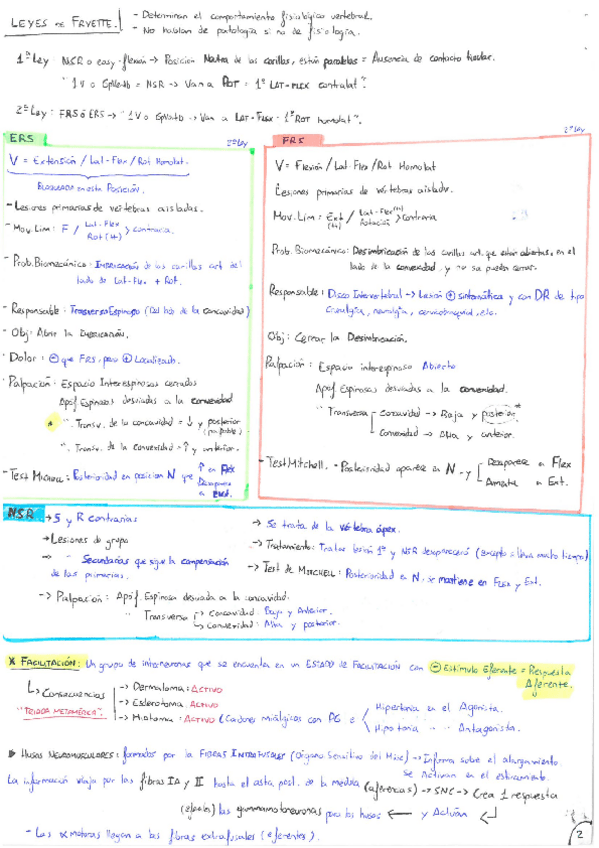 LEYES DE FRYETTE.
- Determinan el comportamiento fisiológico vertebral.
- No hablan de patología si no de fisiología.
1ª Ley NSR o easy-flexión → Posición Neutra de las carillas, están paralelas = Ausencia de contacto
"1 V o GpVertb = NSR → Van a ROT = 1º LAT-FLEX contralat".
2ª Ley: FRS ó ERS → "1 V o GpVertb → Van a LAT-FLEX = 1º ROT homolat".
ERS
2ª Ley
V = Extensión / Lat-Flex / Rot Homolat.
BLOQUEADO en esta POSICIÓN.
- Lesiones primarias de vértebras aisladas.
- Mov. Lim: F / Lat-Flex Rot (H) > contraria.
- Prob. Biomecánico: IMBRICACIÓN de las carillas art del
lado de Lat-Flex + Rot.
- Responsable: Trasverso Espinoso (Del lado de la concavidad)
- Obj: Abrir la IMBRICACIÓN.
- Dolor: ⊖ que FRS, pero ⊕ Localizado.
- Palpación: Espacio Interespinosas cerrados
Apóf Espinosas desviadas a la convexidad
* " Transv. de la concavidad = ↓ y posterior
(palpable)
" Transv. de la convexidad = ↑ y anterior.
- Test Mitchell: Posterioridad en posición N que ↑ en Flex
Desaparece
a Ext.
FRS
2ª Ley
V = Flexión / Lat Flex / Rot Homolat
Lesiones primarias de vértebras aisladas.
Mov. Lim: Ext / Lat-Flex Rotación > contraria
Prob. Biomecánico: Desimbricación de las carillas art. que están abiertas, en el
lado de la convexidad, y no se pueden cerrar.
Responsable: Disco Intervertebral → Lesión ⊕ sintomática y con DR de tipo
cruralgia, neuralgia, cervicobraquial, etc.
Obj: Cerrar la Desimbricación.
Palpación: Espacio interespinoso Abierto
Apóf Espinosas desviadas a la convexidad.
" Transversa - Concavidad → Baja y posterior
Convexidad → Alta y anterior.
- Test Mitchell. - Posterioridad aparece en N - y Desaparece a Flex
Aumenta a Ext.
NSR
→ S y R contrarias
→ Lesiones de grupo
→ Secundarias que sigue la compensación
de las primarias.
→ Palpación: Apóf. Espinosa desviada a la concavidad.
" Transversa → Concavidad: Baja y Anterior.
→ Convexidad: Alta y posterior.
→ Se trata de la vértebra ápex.
→ Tratamiento: Tratar lesión 1ª y NSR desaparecerá (excepto si lleva mucho tiempo)
→ Test de MITCHELL: Posterioridad en N, se mantiene en Flex y Ext.
* FACILITACIÓN: Un grupo de interneuronas que se encuentra en un ESTADO DE FACILITACIÓN con ⊖ Estímulo Eferente = Respuesta
Aferente.
↳ CONSECUENCIAS
"TRIADA METAMÉRICA"
→ Dermatoma: ACTIVO
→ Esclerotoma ACTIVO
→ Miotoma: ACTIVO (Cordones miálgicos con PG e Hipertonía en el Agonista.
Hipotonía " " Antagonista.
HUSOS NEUROMUSCULARES: formados por la FIBRAS INTRAFUSALES (Órgano Sensitivo del Músc) → Informa sobre el alargamiento.
Se Activan en el estiramiento.
La información viaja por las fibras IA y II hasta el asta post. de la médula (aferencias) → SNC → Crea 1 respuesta
las gammamotoneuronas para los husos ← y Actúan
- Las α motoras llegan a las fibras extrafusales (eferentes).
2